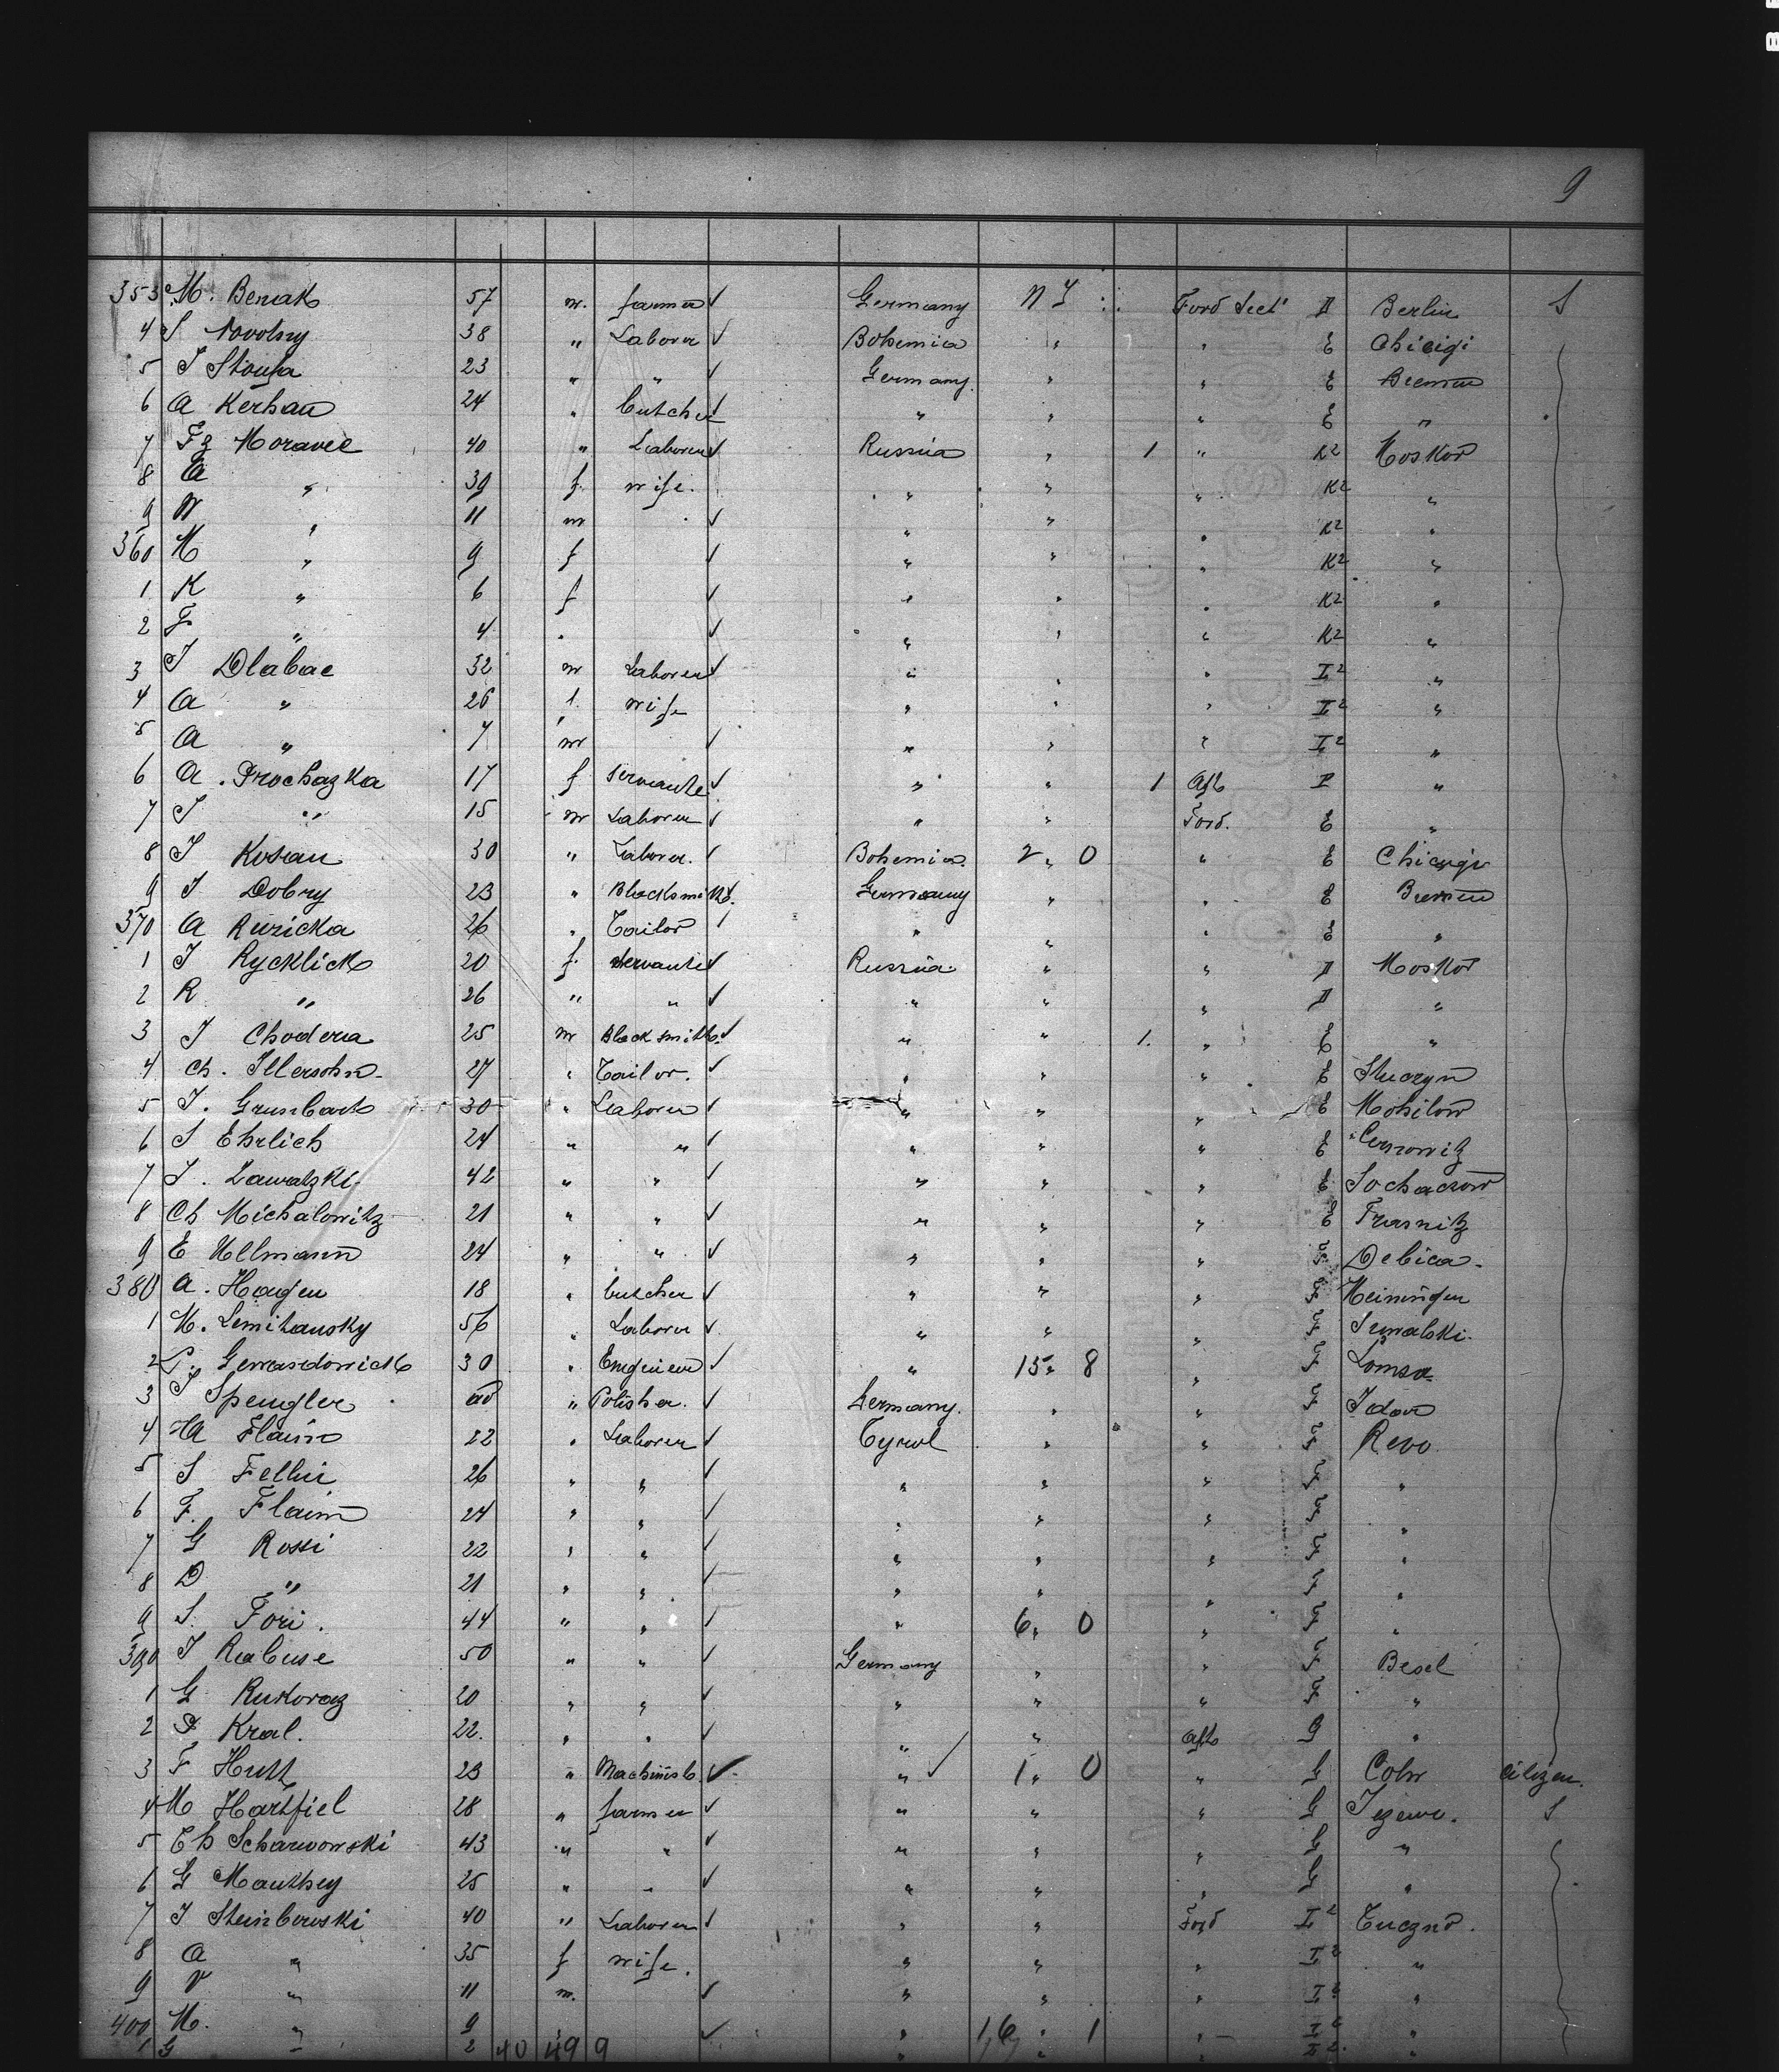 9
353 M. Benak 57 m. farmer ✓ Germany N Y Ford Sect D Berlin S
4 S Novotny 38 " Laborer ✓ Bohemia " " E Chicigi
5 J Stoupa 23 " " ✓ Germany " " E Bremen
6 A Kerhan 24 " butcher ✓ " " " E "
7 Fz Moravec 40 " Laborer ✓ Russia " 1 " K2 Moskow
8 A " 39 f. wife. " " " K2 "
9 W " 11 m ✓ " " " K2 "
360 M " 9 f ✓ " " " K2 "
1 K " 6 f ✓ " " " K2 "
2 F " 4 " ✓ " " " K2 "
3 J Dlabac 32 m Laborer ✓ " " " I2 "
4 A " 26 f. wife " " " I2 "
5 A " 7 m ✓ " " " I2 "
6 A. Prochazka 17 f servante ✓ " " 1 Aft P "
7 J " 15 m Laborer ✓ " " Ford. E "
8 J Kosan 30 " Laborer. ✓ Bohemia 2 " 0 " E Chicago
9 J Dobry 23 " Blacksmith ✓ Germany " " E Bremen
370 A Ruzicka 26 " Tailor ✓ " " " E "
1 J Rycklick 20 f. servante ✓ Russia " " D Moskow
2 R " 26 " " ✓ " " " D "
3 J Chodera 25 m Blacksmith ✓ " " 1. " E "
4 Ch. Illersohn 27 " Tailor. ✓ " " " E Stuczyn
5 J. Grunbart 30 " Laborer ✓ " " " E Mohilow
6 S Ehrlich 24 " " ✓ " " " E
7 J. Lawatzki 42 " " ✓ " " " E Sochaczow
8 Ch Michalowitz 21 " " ✓ " " " E Frasnitz
9 E Ullmann 24 " " ✓ " " " F Debica
380 A. Hagen 18 " butcher ✓ " " " F Meiningen
1 M. Lemitansky 56 " Laborer ✓ " " " F Suwalski
2 30 " Engineer ✓ " 15 " 8 " F Lomsa
3 J Spengler ad " Polisher. ✓ Germany. " " F Idar
4 Ha Flaim 22 " Laborer ✓ Tyrol " " F Revo
5 S Fellin 26 " " ✓ " " " F "
6 F. Flaim 24 " " ✓ " " " F "
7 G Rossi 22 " " ✓ " " " F "
8 D " 21 " " ✓ " " " F "
9 S. Fori. 44 " " ✓ " 6 " 0 " F "
390 J Rabuse 50 " " ✓ Germany " " F Besel
1 G Rukoraz 20 " " ✓ " " " F "
2 F Kral. 22. " " ✓ " " aft G "
3 F Hutt 23 " Machinist ✓ " ✓ 1 " 0 " G Coln citizen.
4 M Hartfiel 28 " farmer ✓ " " " G Jezewe. S
5 Th Scharwowski 43 " " ✓ " " " G "
6 G Manthey 25 " " ✓ " " " G "
7 J Steinborski 40 " Laborer ✓ " " Ford I2 Tuczno.
8 A " 35 f wife. " " " I2 "
9 V " 11 m. ✓ " " " I2 "
400 M. " 9 " ✓ " 1,6 " 1 " I2 "
1 G " 2 40 49 9 " " " I2 "